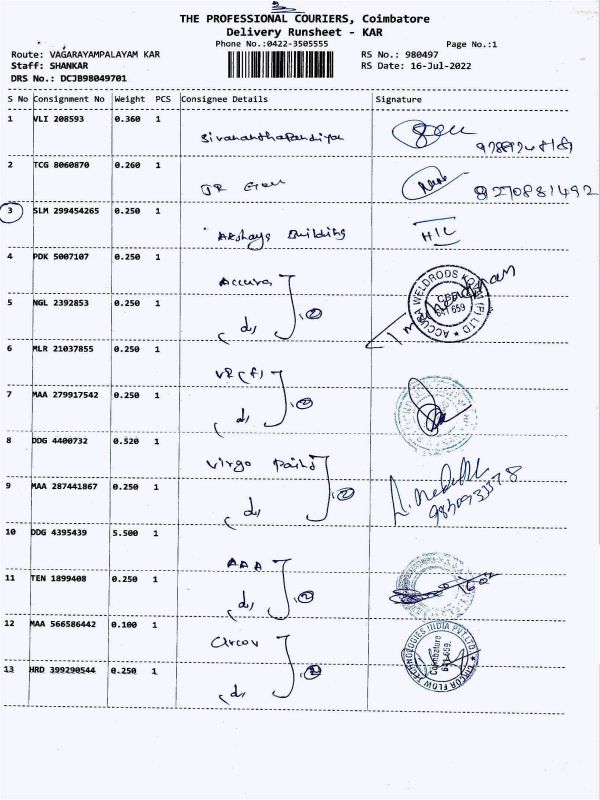 THE PROFESSIONAL COURIERS, Coimbatore
Delivery Runsheet - KAR
Phone No.:0422-3505555
Page No.:1
Route: VAGARAYAMPALAYAM KAR
RS No.: 980497
Staff: SHANKAR
RS Date: 16-Jul-2022
DRS No.: DCJB98049701
S No Consignment No Weight PCS Consignee Details Signature
1 VLI 208593 0.360 1
Sivananthapandiyan
2 TCG 8060870 0.260 1
8270881492
3 SLM 299454265 0.250 1
Akshaya Building
H/L
4 PDK 5007107 0.250 1
Accura
ACCURA WELDRODS KOVAI (P) LTD
641 659
5 NGL 2392853 0.250 1
(2)
6 MLR 21037855 0.250 1
VR (f)
7 MAA 279917542 0.250 1
(2)
8 DDG 4400732 0.520 1
Virgo
9 MAA 287441867 0.250 1
(2)
10 DDG 4395439 5.500 1
AAA
11 TEN 1899408 0.250 1
(2)
12 MAA 566586442 0.100 1
Circor
CIRCOR FLOW TECHNOLOGIES INDIA PVT LTD
Coimbatore
641 659.
13 HRD 399290544 0.250 1
(2)